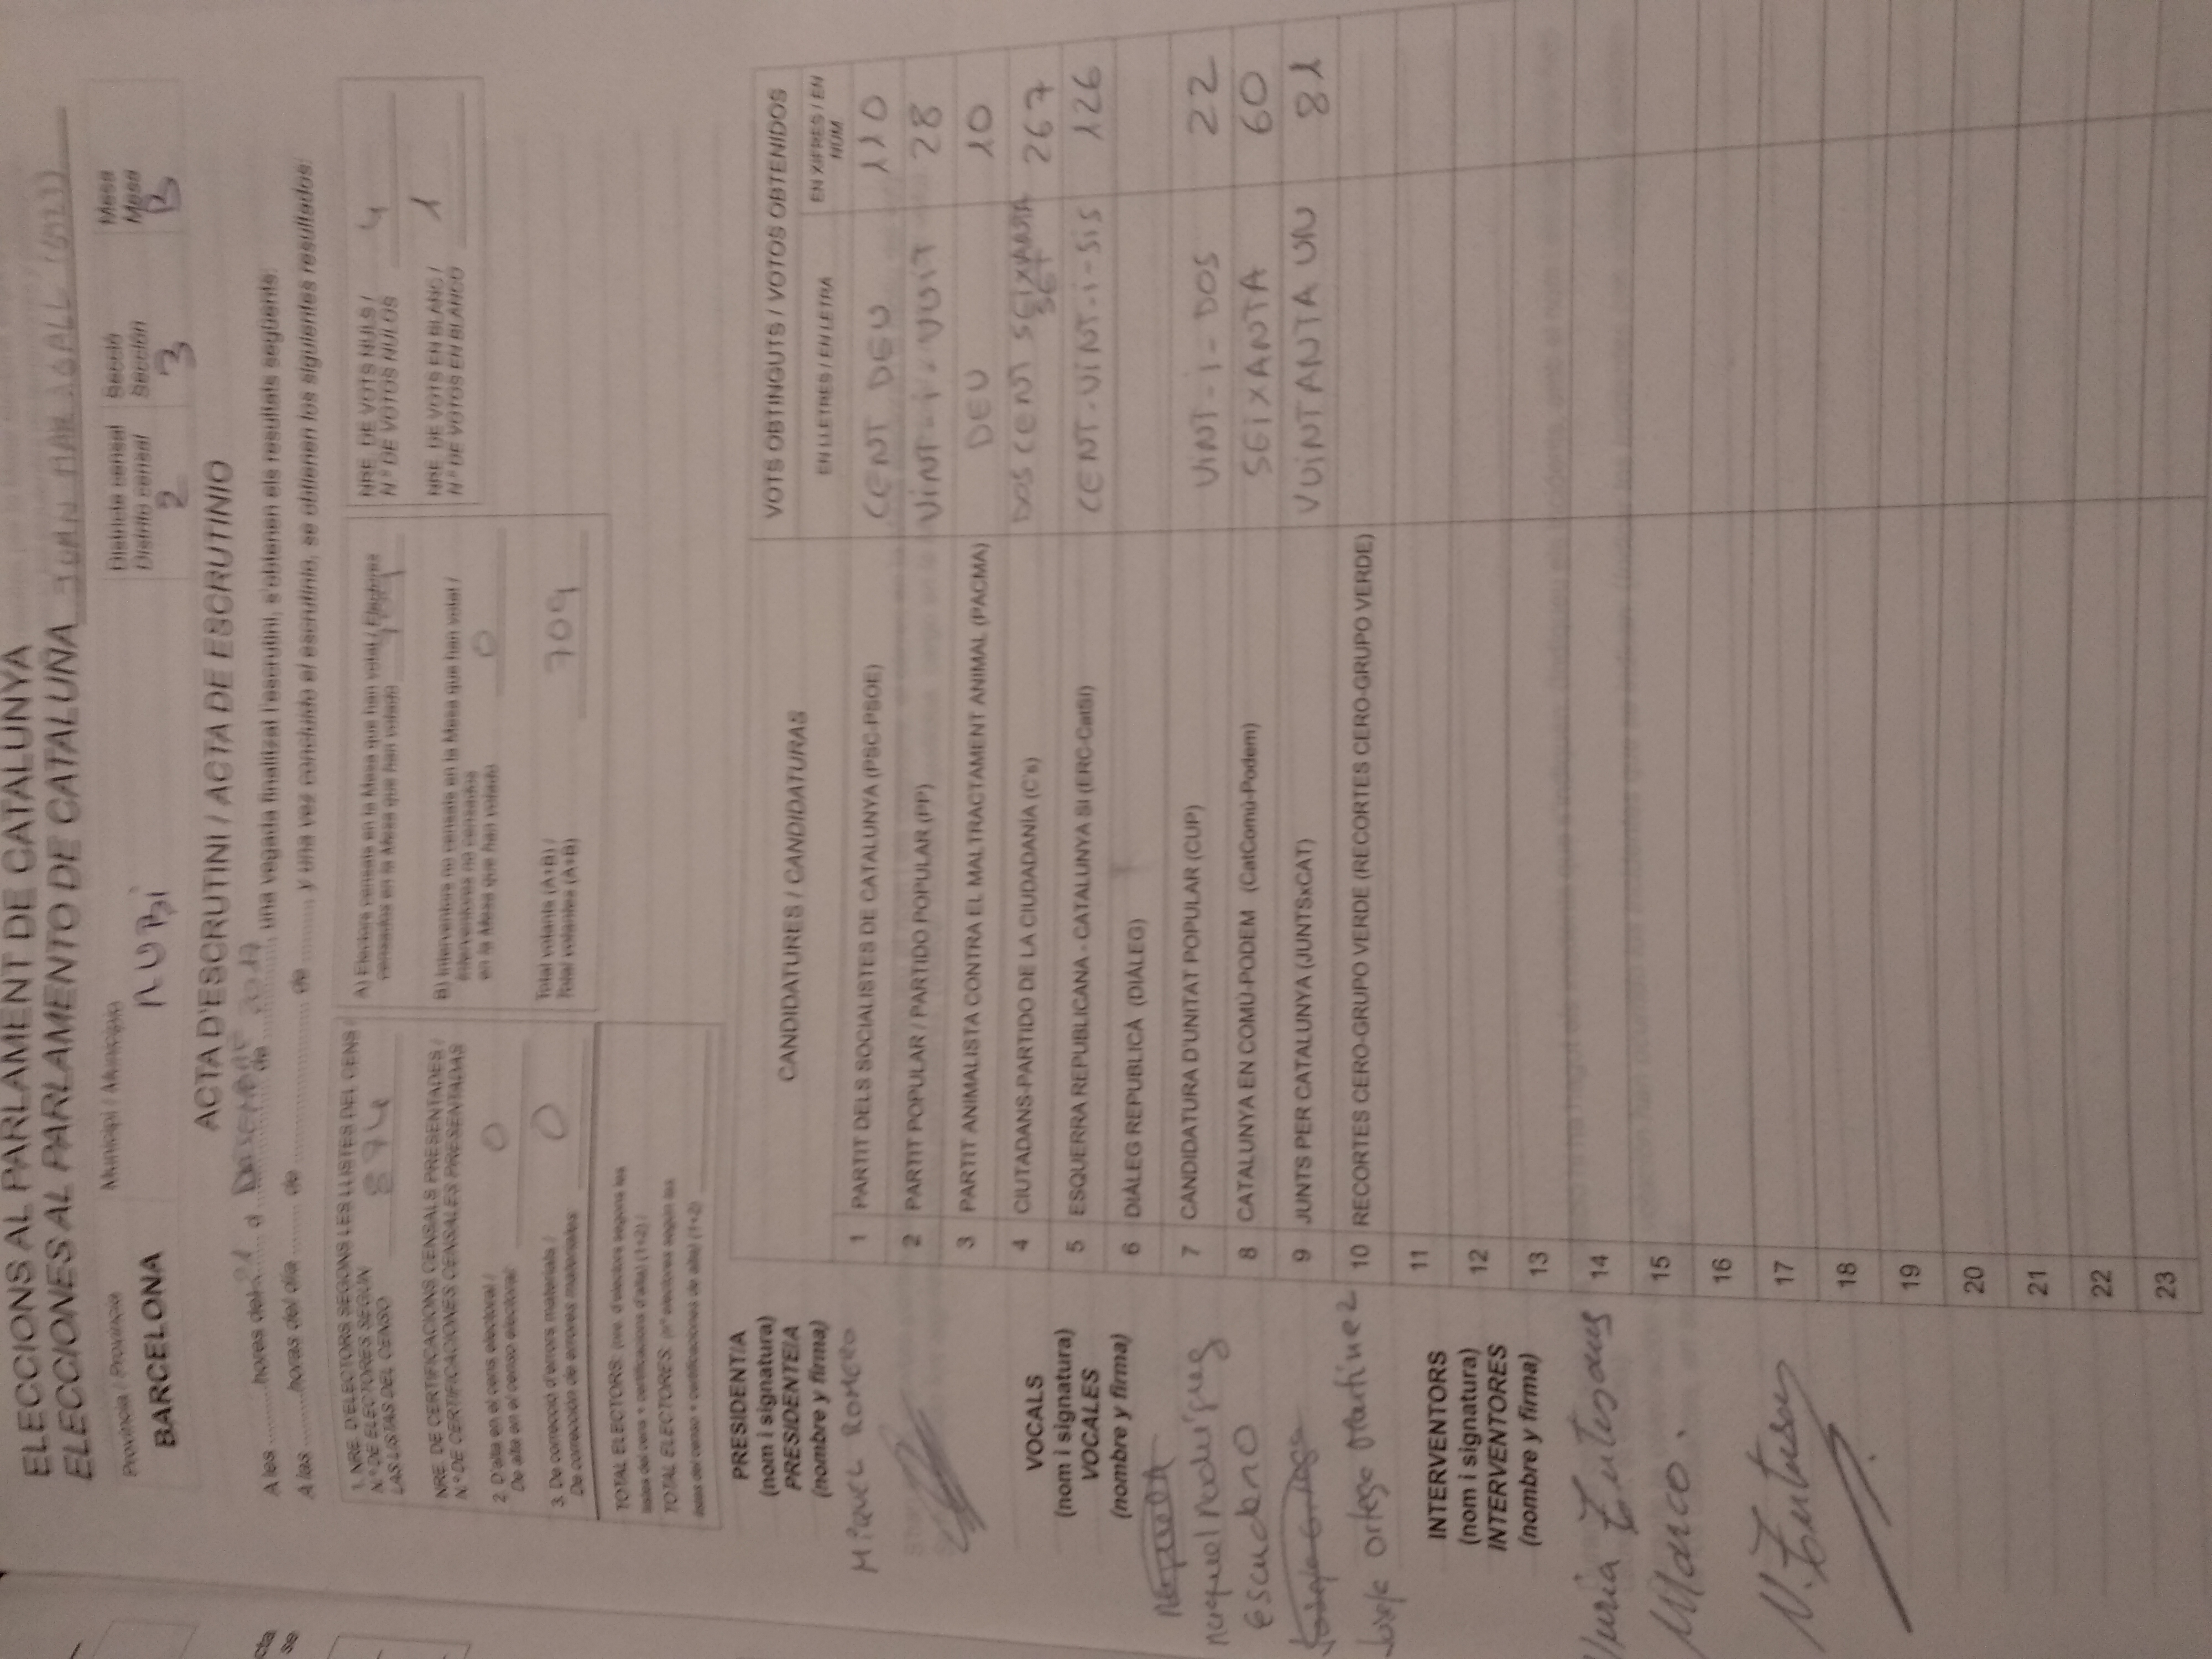 ELECCIONS AL PARLAMENT DE CATALUNYA
ELECCIONES AL PARLAMENTO DE CATALUÑA JOAN MARAGALL
Província / Provincia
BARCELONA
Municipi / Municipio
RUBi
Districte censal
Distrito censal
2
Secció
Sección
3
Mesa
Mesa
B
ACTA D'ESCRUTINI / ACTA DE ESCRUTINIO
A les .......... hores del 21 d DESEMBRE de 2017, una vegada finalitzat l'escrutini, s'obtenen els resultats següents:
A las .......... horas del día ........ de ........................ de .........., y una vez concluido el escrutinio, se obtienen los siguientes resultados:
1. NRE. D'ELECTORS SEGONS LES LLISTES DEL CENS /
N.º DE ELECTORES SEGÚN
LAS LISTAS DEL CENSO 894
NRE. DE CERTIFICACIONS CENSALS PRESENTADES /
N.º DE CERTIFICACIONES CENSALES PRESENTADAS
2. D'alta en el cens electoral /
De alta en el censo electoral: 0
3. De correcció d'errors materials /
De corrección de errores materiales: 0
TOTAL ELECTORS: (nre. d'electors segons les
llistes del cens + certificacions d'alta) (1+2) /
TOTAL ELECTORES: (nº electores según las
listas del censo + certificaciones de alta) (1+2)
A) Electors censats en la Mesa que han votat / Electores
censados en la Mesa que han votado 709
B) Interventors no censats en la Mesa que han votat /
Interventores no censados
en la Mesa que han votado 0
Total votants (A+B) /
Total votantes (A+B) 709
NRE. DE VOTS NULS /
N.º DE VOTOS NULOS 4
NRE. DE VOTS EN BLANC /
N.º DE VOTOS EN BLANCO 1
PRESIDENT/A
(nom i signatura)
PRESIDENTE/A
(nombre y firma)
MiQUEL ROMERO
VOCALS
(nom i signatura)
VOCALES
(nombre y firma)
Raquel Rodríguez
Escudero
Josefa Ortega Martínez
INTERVENTORS
(nom i signatura)
INTERVENTORES
(nombre y firma)
Marco.
CANDIDATURES / CANDIDATURAS
VOTS OBTINGUTS / VOTOS OBTENIDOS
EN LLETRES / EN LETRA
EN XIFRES / EN NÚM
1 PARTIT DELS SOCIALISTES DE CATALUNYA (PSC-PSOE) CENT DEU 110
2 PARTIT POPULAR / PARTIDO POPULAR (PP) ViNT-i-VUiT 28
3 PARTIT ANIMALISTA CONTRA EL MALTRACTAMENT ANIMAL (PACMA) DEU 10
4 CIUTADANS-PARTIDO DE LA CIUDADANÍA (C's) DOS CENT SEiXANTA SET 267
5 ESQUERRA REPUBLICANA - CATALUNYA SÍ (ERC-CatSí) CENT-ViNT-i-SiS 126
6 DIÀLEG REPUBLICÀ (DIÀLEG)
7 CANDIDATURA D'UNITAT POPULAR (CUP) ViNT-i-DOS 22
8 CATALUNYA EN COMÚ-PODEM (CatComú-Podem) SEiXANTA 60
9 JUNTS PER CATALUNYA (JUNTSxCAT) VUiNTANTA UN 81
10 RECORTES CERO-GRUPO VERDE (RECORTES CERO-GRUPO VERDE)
11
12
13
14
15
16
17
18
19
20
21
22
23